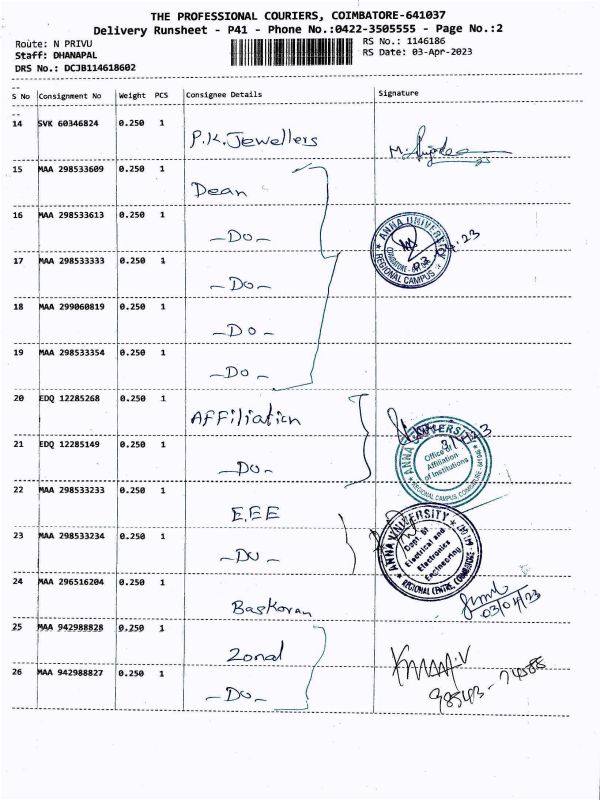 THE PROFESSIONAL COURIERS, COIMBATORE-641037
Delivery Runsheet - P41 - Phone No.:0422-3505555 - Page No.:2
Route: N PRIVU
RS No.: 1146186
Staff: DHANAPAL
RS Date: 03-Apr-2023
DRS No.: DCJB114618602
S No Consignment No Weight PCS Consignee Details Signature
14 SVK 60346824 0.250 1
P.K. Jewellers
M.
15 MAA 298533609 0.250 1
Dean
16 MAA 298533613 0.250 1
-Do-
ANNA UNIVERSITY
REGIONAL CAMPUS
COIMBATORE
17 MAA 298533333 0.250 1
-Do-
18 MAA 299060819 0.250 1
-Do-
19 MAA 298533354 0.250 1
-Do-
20 EDQ 12285268 0.250 1
Affiliation
21 EDQ 12285149 0.250 1
-Do-
ANNA UNIVERSITY
Office of
Affiliation
of Institutions
REGIONAL CAMPUS, COIMBATORE
22 MAA 298533233 0.250 1
EEE
23 MAA 298533234 0.250 1
-Do-
ANNA UNIVERSITY
Dept. of
Electrical and
Electronics
Engineering
REGIONAL CENTRE, COIMBATORE
24 MAA 296516204 0.250 1
Baskaran
03/04/23
25 MAA 942988828 0.250 1
Zonal
26 MAA 942988827 0.250 1
-Do-